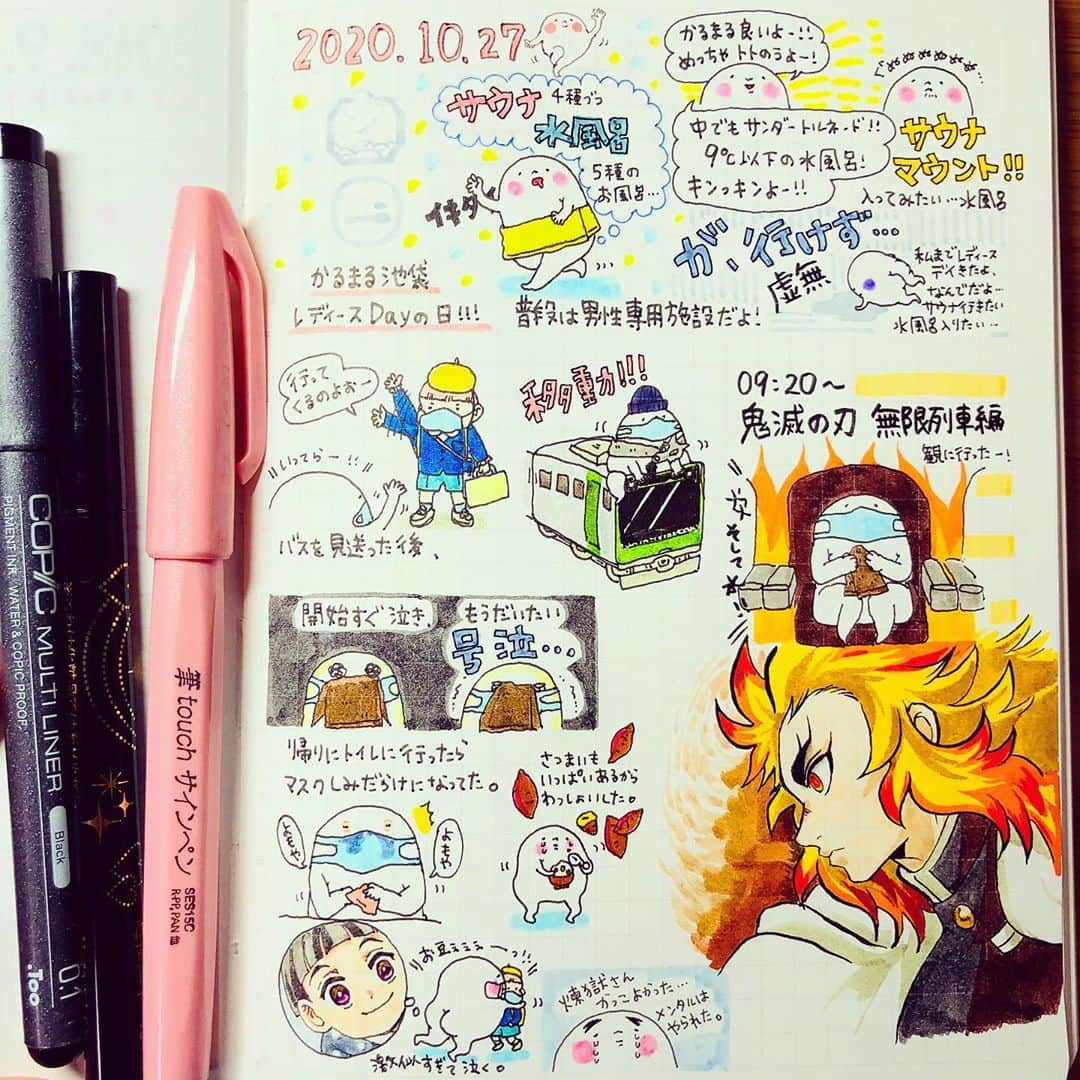 2020.10.27
サウナ 4種づつ
水風呂
5種の
お風呂…
イキタイ
かるまる池袋
レディースDayの日!!!
普段は男性専用施設だよ!
かるまる良いよー!!
めっちゃトトのうよー!
中でもサンダートルネード!!
9℃以下の水風呂!
キンッキンよー!!
ぬぬぬぬぬ…
サウナ
マウント!!
入ってみたい…水風呂
が、行けず…
虚無
私までレディース
デイきたよ、
なんでだよ…
サウナ行きたい
水風呂入りたい…
行って
くるのよおー
いってらー!!
バスを見送った後、
移動!!!
09:20〜
鬼滅の刃 無限列車編
観に行ったー!
そして
開始すぐ泣き、
もうだいたい
号泣…
帰りにトイレに行ったら
マスクしみだらけになってた。
よもや
よもや
さつまいも
いっぱいあるから
わっしょいした。
お豆ェェェーっ!!
激似すぎて泣く。
煉獄さん
かっこよかった…
メンタルは
やられた。
COPIC MULTI LINER
PIGMENT INK, WATER & COPIC PROOF
Black
0.1
.Too
筆touch サインペン
SES15C
R-PP, PAN